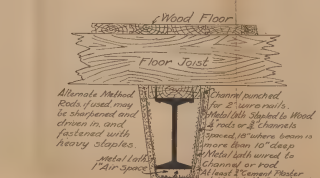 Wood Floor
Floor Joist
Alternate Method
Rods, if used, may
be sharpened and
driven in, and
fastened with
heavy staples.
Metal Lath
1" Air Space
Channel punched
for 2" wire nails.
Metal Lath Stapled to Wood
rods or channels
spaced 16" where beam is
more than 10" deep
Metal bath wired to
Channel or rod
At least Cement Plaster